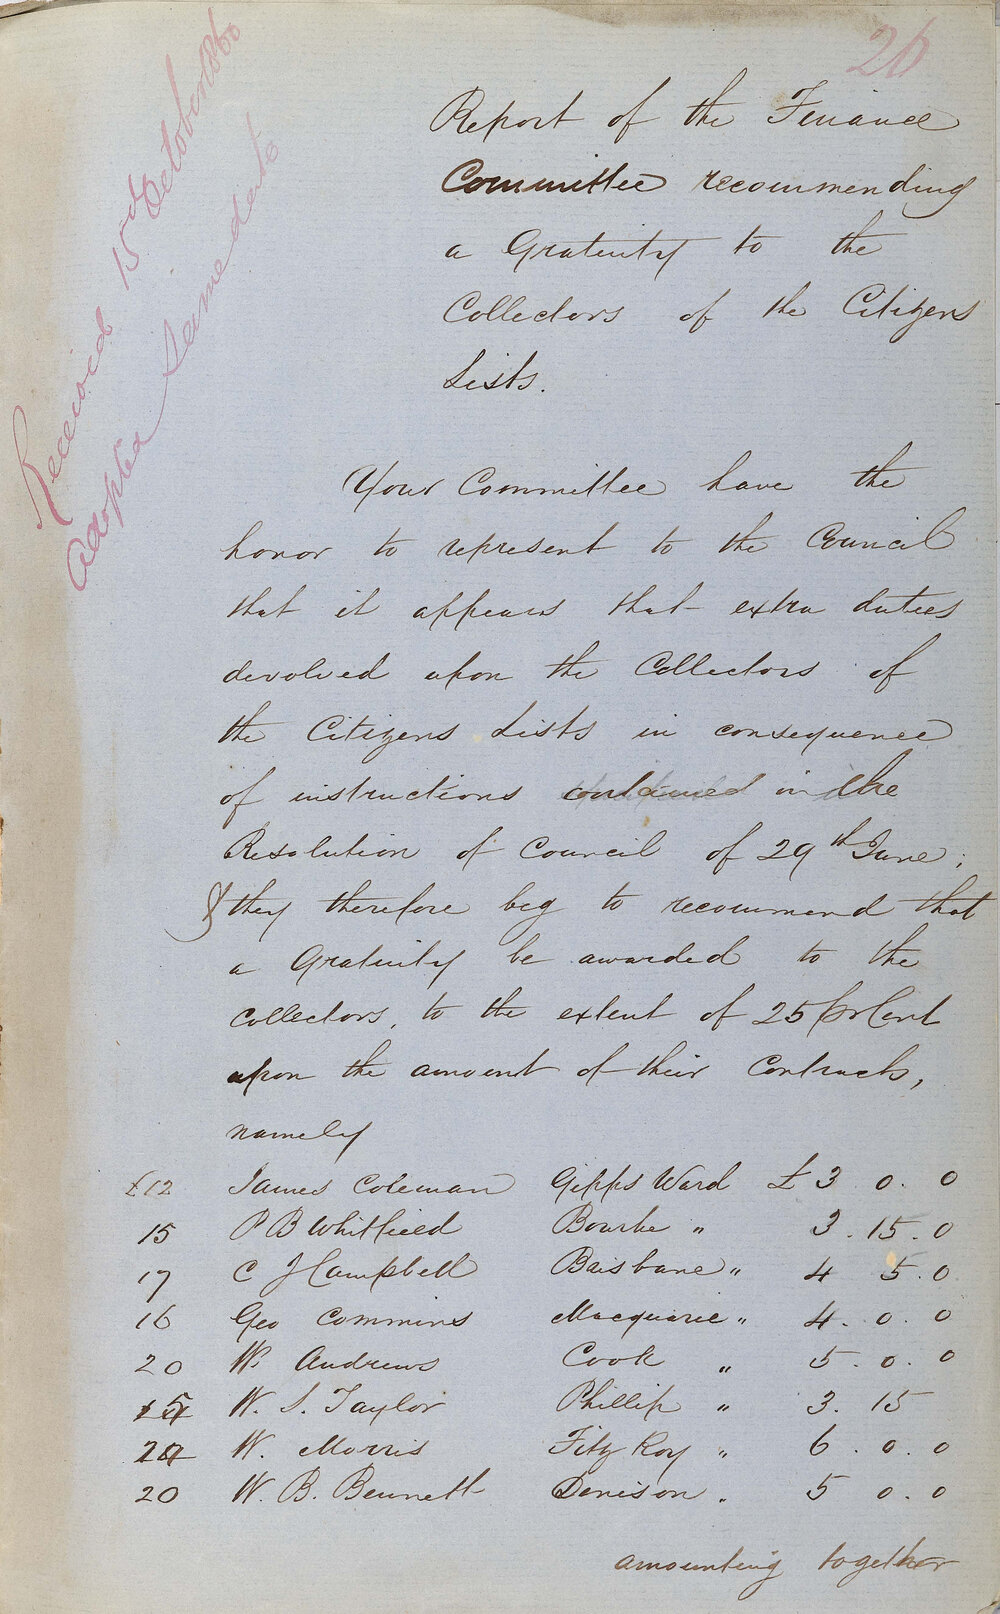 26
Received 15th October 1860
Adopted Same date
Report of the Finance
Committee recommending
a Gratuity to the
Collectors of the Citizens
Lists.
Your Committee have the
honor to represent to the Council
that it appears that extra duties
devolved upon the Collectors of
the Citizens Lists in consequence
of instructions contained in the
Resolution of Council of 29th June;
& they therefore beg to recommend that
a Gratuity be awarded to the
Collectors, to the extent of 25 pr Cent
upon the amount of their Contracts,
namely
£12 James Coleman Gipps Ward £3 0. 0
15 P B Whitfield Bourke " 3. 15. 0
17 C J Campbell Brisbane " 4 5. 0
16 Geo Commins Macquarie " 4. 0. 0
20 W. Andrews Cook " 5. 0. 0
15 W. S. Taylor Phillip " 3. 15
24 W. Morris Fitz Roy " 6. 0. 0
20 W. B. Bennett Denison " 5 0. 0
amounting together